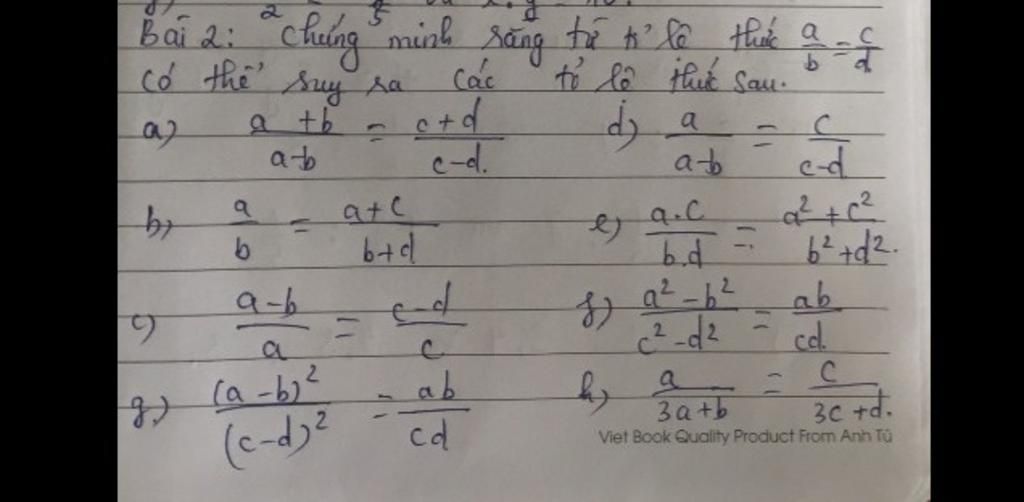 Bài 2: Chứng minh rằng từ tỉ lệ thức a/b = c/d
có thể suy ra các tỉ lệ thức sau.
a) (a+b)/(a-b) = (c+d)/(c-d) d) a/(a-b) = c/(c-d)
b) a/b = (a+c)/(b+d) e) (a.c)/(b.d) = (a²+c²)/(b²+d²).
c) (a-b)/a = (c-d)/c f) (a²-b²)/(c²-d²) = ab/cd
g) (a-b)²/(c-d)² = ab/cd h) a/(3a+b) = c/(3c+d).
Viet Book Quality Product From Anh Tú